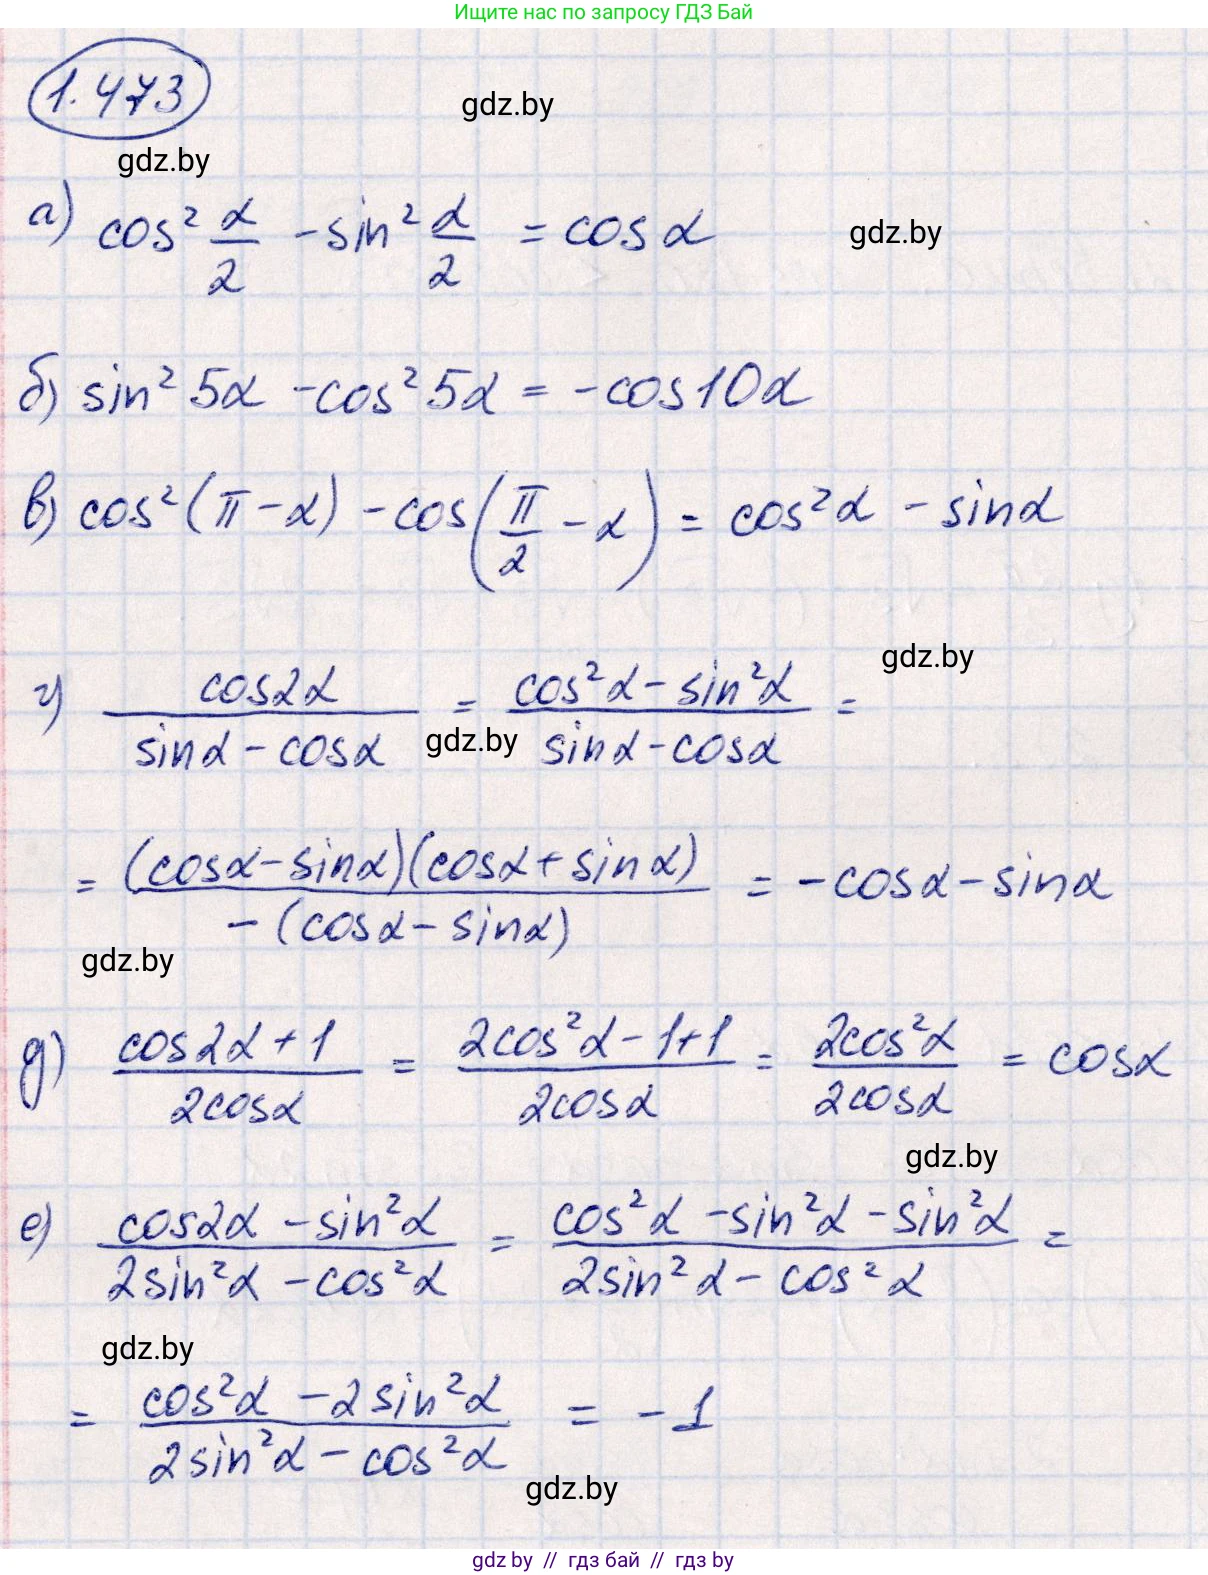 Ищите нас по запросу ГДЗ Бай
1.473
gdz.by
gdz.by
а) cos² α/2 - sin² α/2 = cos α
gdz.by
б) sin² 5α - cos² 5α = - cos 10α
в) cos² (π - α) - cos (π/2 - α) = cos² α - sin α
gdz.by
г) cos2α / (sinα - cosα) = (cos²α - sin²α) / (sinα - cosα) =
gdz.by
= (cosα - sinα)(cosα + sinα) / -(cosα - sinα) = - cosα - sinα
gdz.by
д) (cos2α + 1) / 2cosα = (2cos²α - 1 + 1) / 2cosα = 2cos²α / 2cosα = cosα
gdz.by
е) (cos2α - sin²α) / (2sin²α - cos²α) = (cos²α - sin²α - sin²α) / (2sin²α - cos²α) =
gdz.by
= (cos²α - 2sin²α) / (2sin²α - cos²α) = -1
gdz.by
gdz by // гдз бай // гдз by